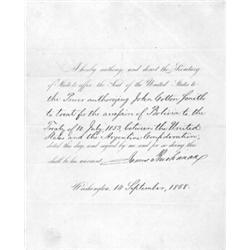 I hereby authorize and direct the Secretary
of State to affix the Seal of the United States to
the Power authorizing John Cotton Smith
to treat for the accession of Bolivia to the
Treaty of 10 July 1853, between the United
States and the Argentine Confederation,
dated this day, and signed by me and for so doing this
shall be his warrant.
James Buchanan
Washington, 14 September, 1858.